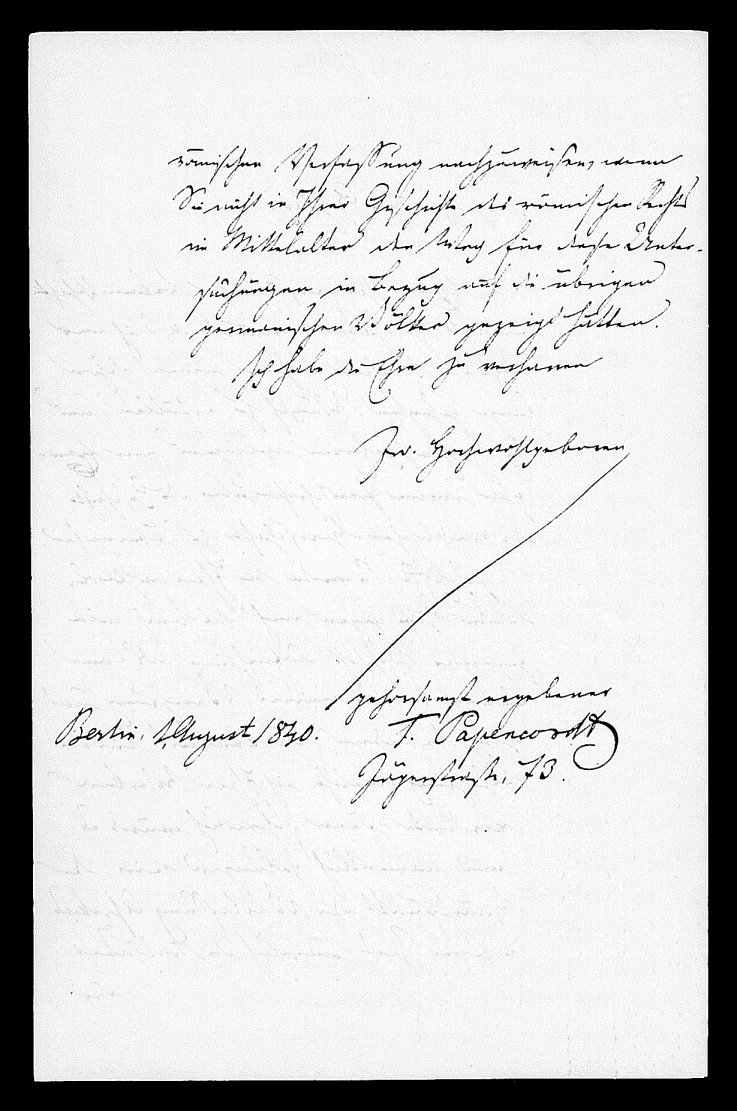 römischen Verfassung nachzuweisen, wenn
Sie nicht in Ihrer Geschichte des römischen Rechts
im Mittelalter den Weg für diese Unter-
suchungen in Bezug auf die übrigen
germanischen Völker gezeigt hätten.
Ich habe die Ehre zu verharren
Ew. Hochwohlgeboren
gehorsamst ergebener
Berlin, 1. August 1840. F. Papencordt
Jägerstraße, 73.